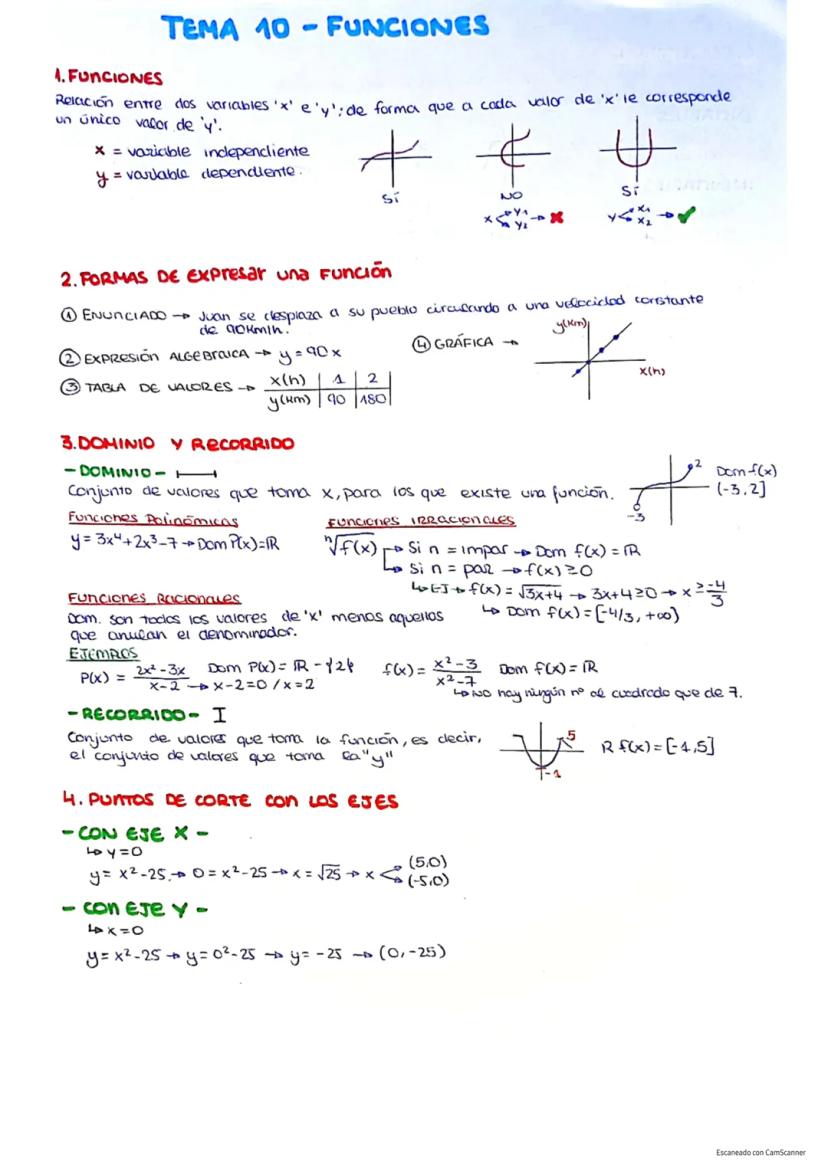 TEMA 10 - FUNCIONES
1. FUNCIONES
Relación entre dos variables 'x' e 'y'; de forma que a cada valor de 'x' le corresponde
un único valor de 'y'.
x = variable independiente
y = variable dependiente.
SÍ
NO
SÍ
x y1 y2 → ✗
y x1 x2 → ✓
2. FORMAS DE EXPRESAR UNA FUNCIÓN
① ENUNCIADO → Juan se desplaza a su pueblo circulando a una velocidad constante
de 90Km/h.
② EXPRESIÓN ALGEBRAICA → y = 90x
③ TABLA DE VALORES → x(h) | 1 | 2
y(Km) | 90 | 180
④ GRÁFICA →
y(Km)
x(h)
3. DOMINIO Y RECORRIDO
- DOMINIO -
Conjunto de valores que toma x, para los que existe una función.
2
-3
Dom f(x)
(-3,2]
Funciones Polinómicas
y = 3x⁴+2x³-7 → Dom P(x)=ℝ
FUNCIONES IRRACIONALES
ⁿ√f(x) → Si n = impar → Dom f(x) = ℝ
→ Si n = par → f(x) ≥ 0
↳ EJ → f(x) = √3x+4 → 3x+4≥0 → x ≥ -4/3
↳ Dom f(x) = [-4/3, +∞)
FUNCIONES RACIONALES
Dom. son todos los valores de 'x' menos aquellos
que anulan el denominador.
EJEMPLOS
P(x) = 2x²-3x / x-2 → x-2=0 / x=2 Dom P(x) = ℝ - {2}
f(x) = x²-3 / x²-7 Dom f(x) = ℝ
↳ NO hay ningún nº al cuadrado que de 7.
- RECORRIDO - I
Conjunto de valores que toma la función, es decir,
el conjunto de valores que toma la "y"
5
-1
R f(x) = [-1,5]
4. PUNTOS DE CORTE CON LOS EJES
- CON EJE X -
↳ y=0
y = x²-25 → 0 = x²-25 → x = √25 → x < (5,0) (-5,0)
- CON EJE Y -
↳ x=0
y = x²-25 → y = 0²-25 → y = -25 → (0,-25)
Escaneado con CamScanner